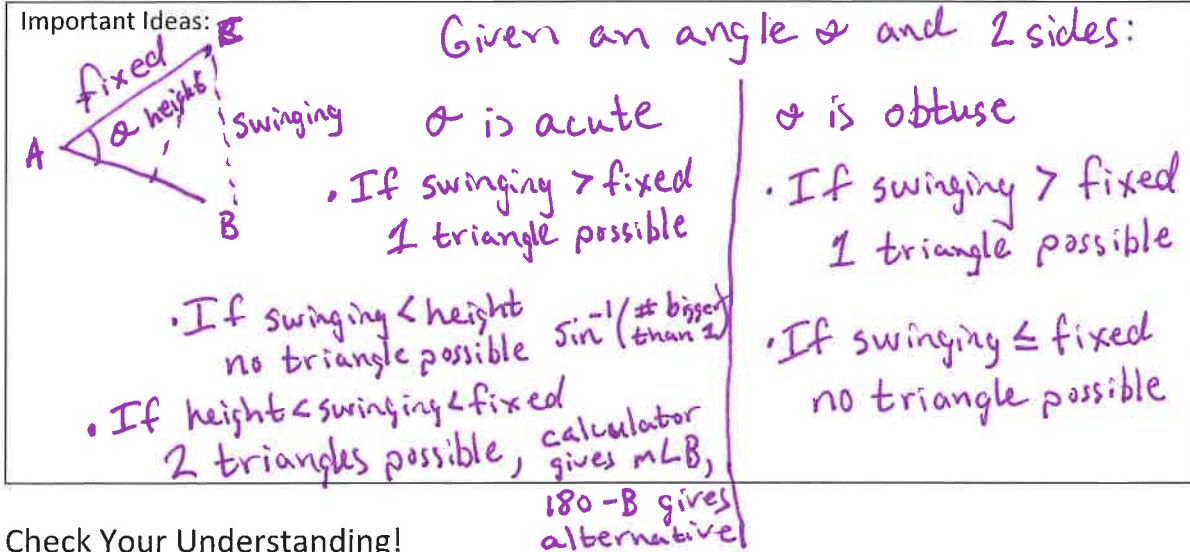 Important Ideas:
Given an angle θ and 2 sides:
fixed
θ height
swinging
A
B
θ is acute
• If swinging > fixed
1 triangle possible
• If swinging < height
no triangle possible sin⁻¹(# bigger than 1)
• If height < swinging < fixed
2 triangles possible, calculator
gives m∠B,
180 - B gives
alternative
θ is obtuse
• If swinging > fixed
1 triangle possible
• If swinging ≤ fixed
no triangle possible
Check Your Understanding!